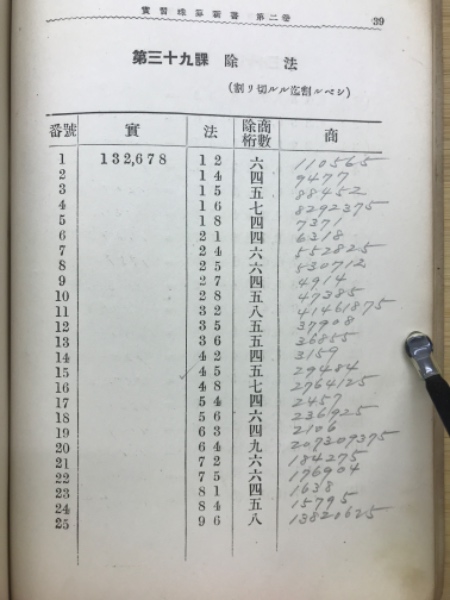 實習珠算新書 第二卷 39
第三十九課 除 法
(割リ切ルル迄割ルベシ)
番號 實 法 除商桁數 商
1 132,678 12 六 110565
2 14 四 9477
3 15 五 88452
4 16 七 8292375
5 18 四 7371
6 21 四 6318
7 24 六 552825
8 25 六 530712
9 27 四 4914
10 28 五 47385
11 32 八 41461875
12 35 五 37908
13 36 五 36855
14 42 四 3159
15 45 五 29484
16 48 七 2764125
17 54 四 2457
18 56 六 236925
19 63 四 2106
20 64 九 207309375
21 72 六 184275
22 75 六 176904
23 81 四 1638
24 84 五 15795
25 96 八 13820625